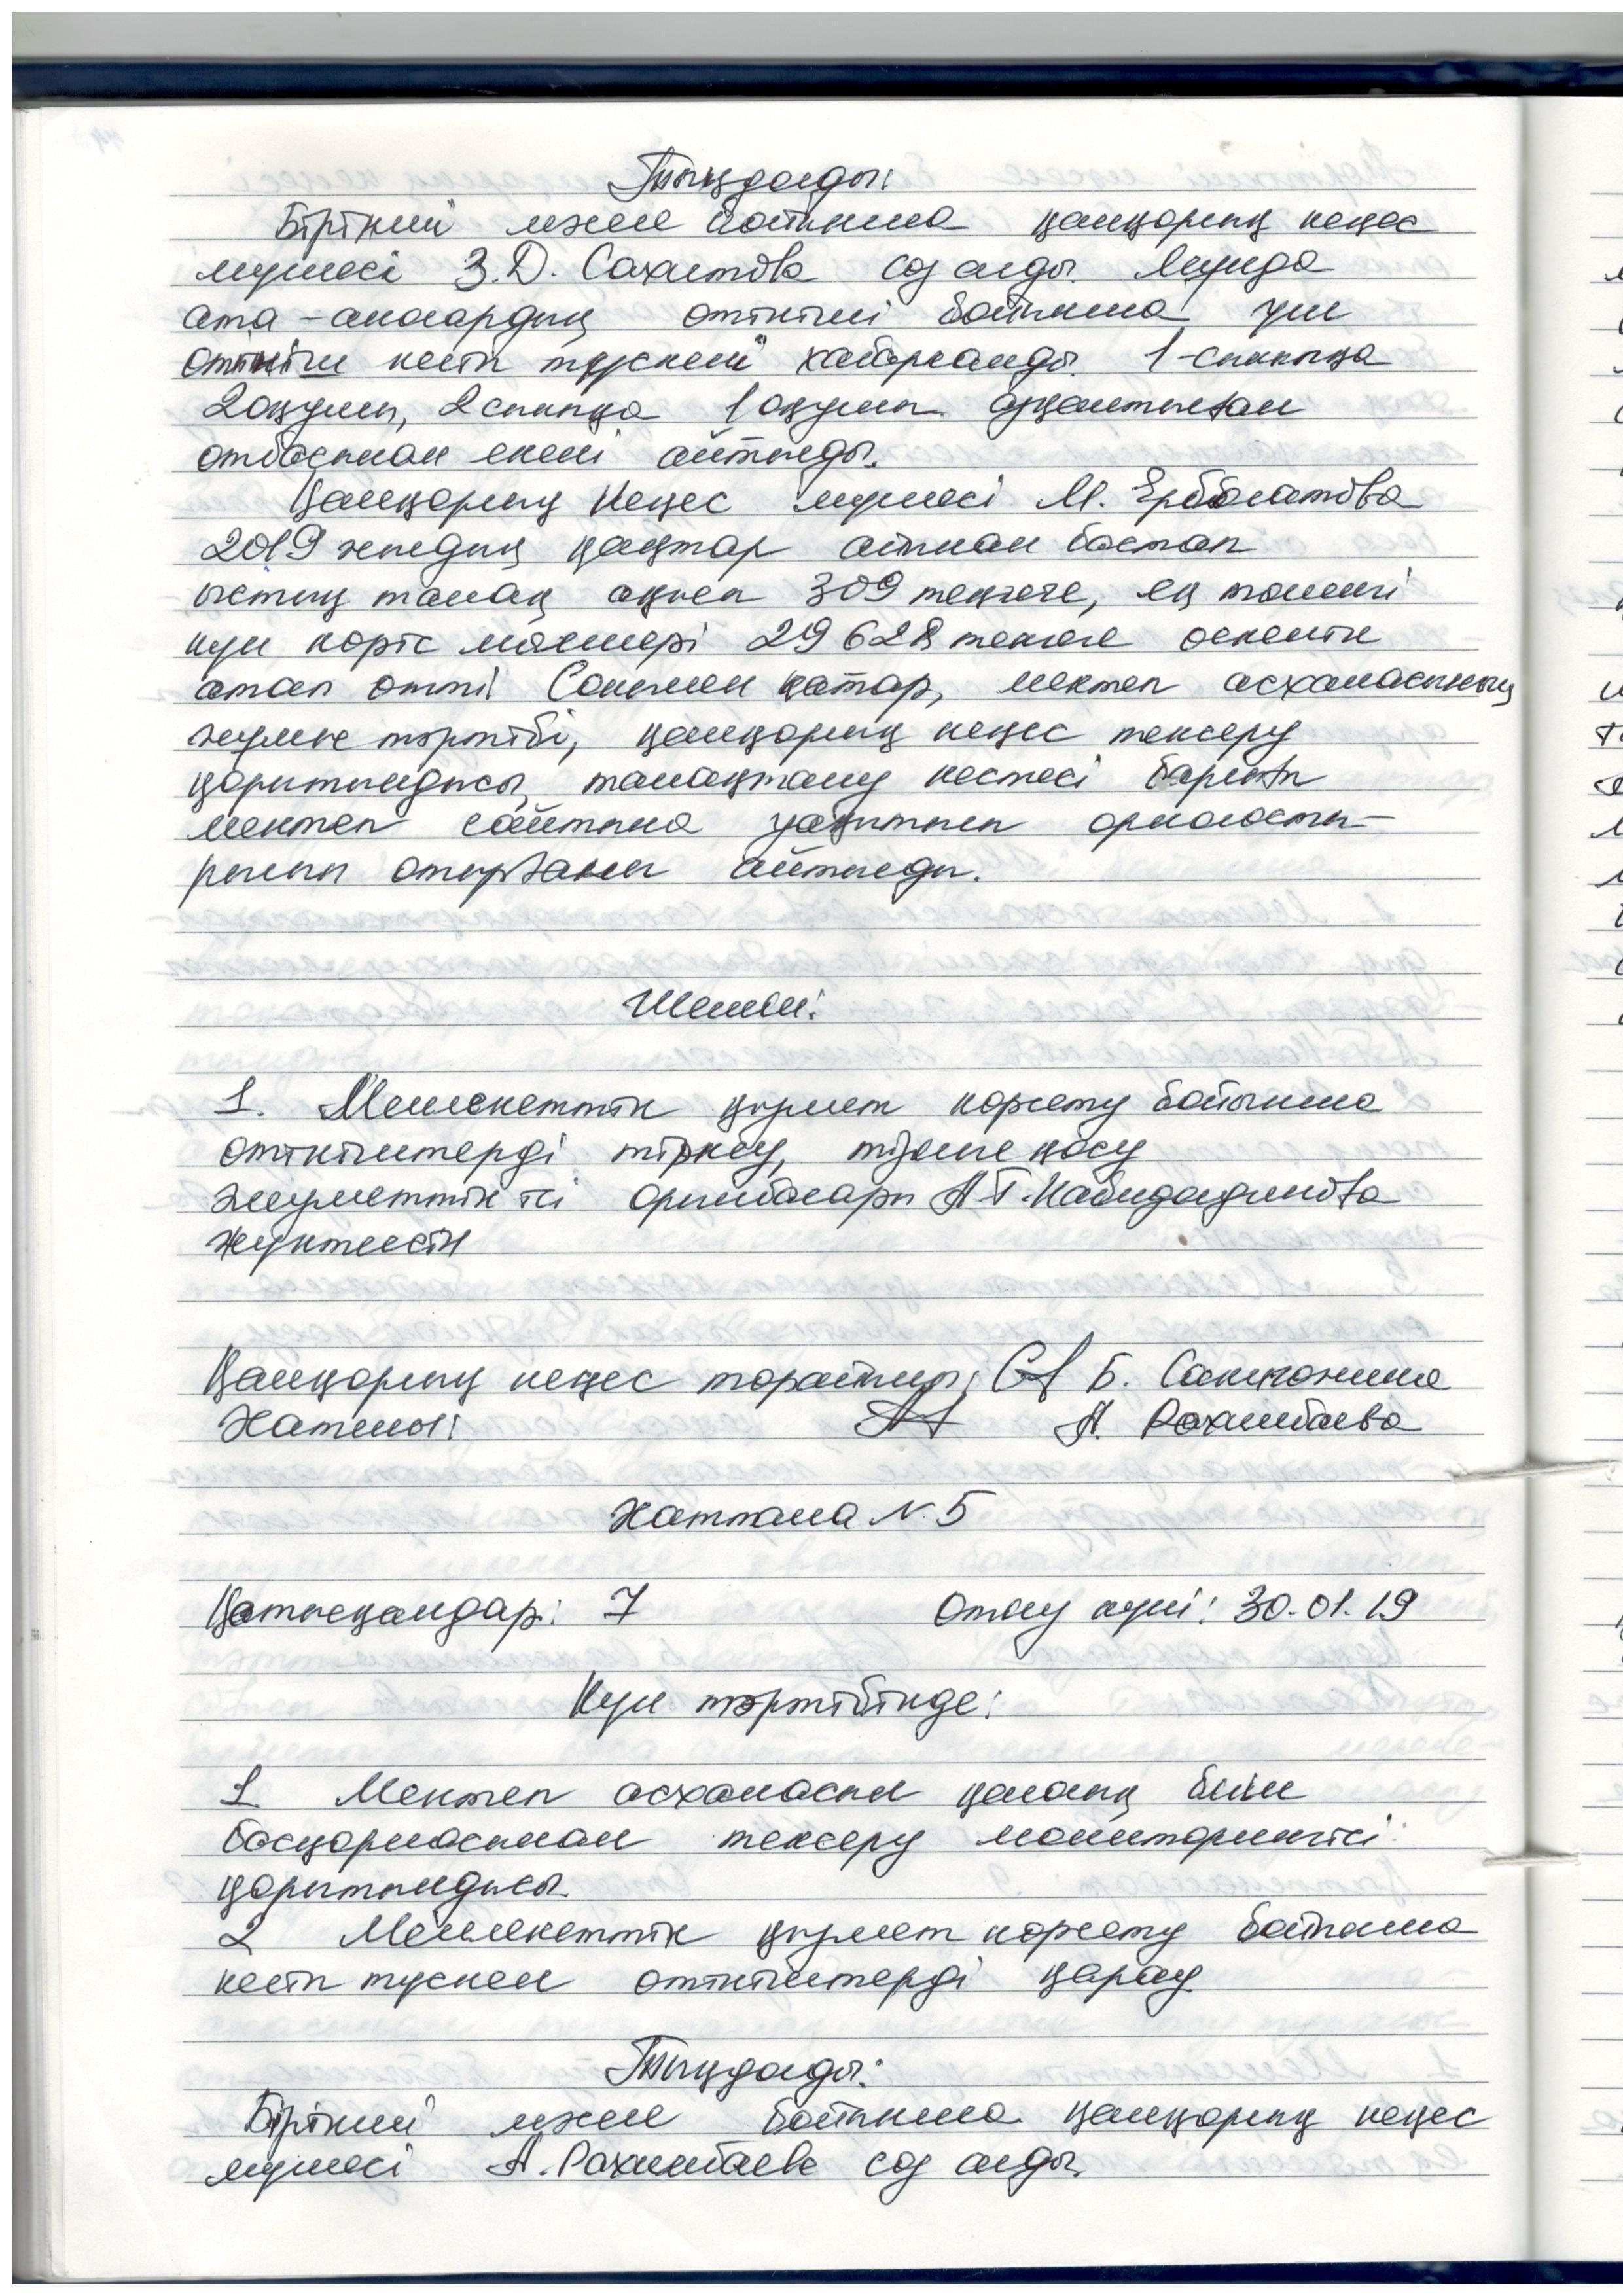 Тыңдалды:
Бірінші мәселе бойынша қамқорлық кеңес
мүшесі З.Д. Сахитова сөз алды. Мұнда
ата-аналардың өтініші бойынша үш
өтініш келіп түскені хабарланды. 1-сыныпқа
2оқушы, 2сыныпқа 1оқушы аз қамтылған
отбасынан екені айтылды.
Қамқорлық Кеңес мүшесі М. Ерболатова
2019 жылдың қаңтар айынан бастап
ыстық тамақ ақысы 309 теңгеге, ең төменгі
күн көріс мөлшері 29 628 теңгеге өскенін
атап өтті. Сонымен қатар, мектеп асханасының
жұмыс тәртібі, қамқорлық кеңес тексеру
қорытындысы, тамақтану кестесі барлығы
мектеп сайтына уақытылы орналасты-
рылып отырғаны айтылды.
Шешімі:
1. Мемлекеттік қызмет көрсету бойынша
өтініштерді тіркеу, тізімге қосу
әлеуметтік ісі орынбасары А.Т.Кабидолдинова
жүктелсін
Қамқорлық кеңес төрайымы: Б.
Хатшы: А. Рахимбаева
Хаттама № 5
Қатысқандар: 7 Өткізу күні: 30.01.19
Күн тәртібінде:
1 Мектеп асханасын қалалық білім
басқармасынан тексеру мониторингісі
қорытындысы.
2 Мемлекеттік қызмет көрсету бойынша
келіп түскен өтініштерді қарау
Тыңдалды:
Бірінші мәселе бойынша қамқорлық кеңес
мүшесі А.Рахимбаева сөз алды.